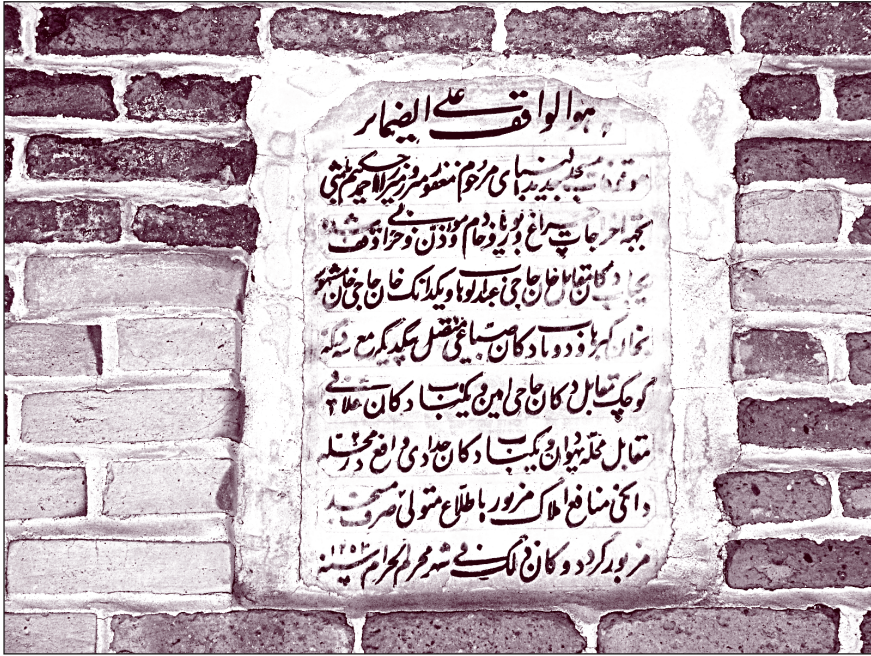 هو الواقف علی الضمائر
موقوفات مسجد جدید بنای مرحوم مغفور میرزا حکیم باشی
بجهة اخراجات چراغ و بوریا و خادم و مؤذن و
یکباب دکان مقابل خان حاجی عبدالوهاب و یکدانک خان حاجی خان مشهور
بخان گبرها و دو باب دکان صباغی متصل بیکدیگر مع
کوچک مقابل دکان حاجی امین و یکباب دکان علافی
مقابل محله و یکباب دکان حدادی واقع در محله
منافع املاک مزبور باطلاع متولی صرف مسجد
مزبور گردد و کان ذلک فی شهر محرم الحرام سنه ۱۲۵۳